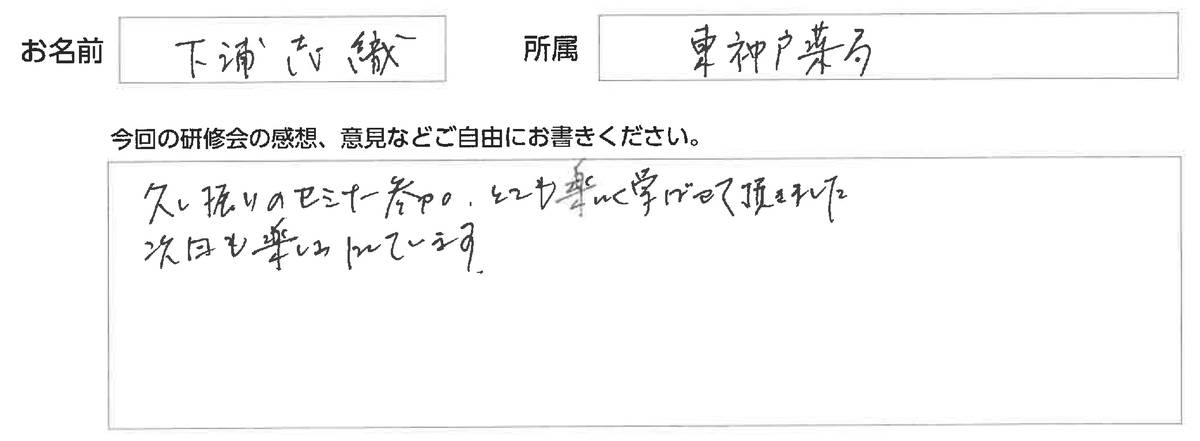 お名前 下浦志織 所属 東神戸薬局
今回の研修会の感想、意見などご自由にお書きください。
久し振りのセミナー参加。とても楽しく学ばせて頂きました
次回も楽しみにしています.